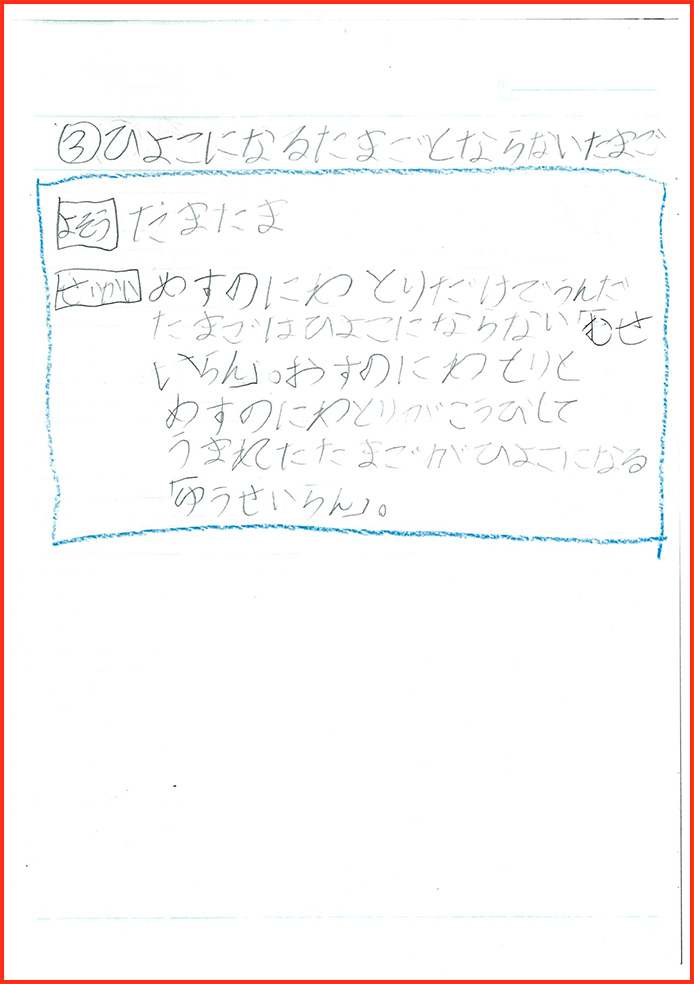 ③ひよこになるたまごとならないたまご
よそう たまたま
せいかい めすのにわとりだけでうんだ
たまごはひよこにならない「むせ
いらん」。おすのにわとりと
めすのにわとりがこうびして
うまれたたまごがひよこになる
「ゆうせいらん」。